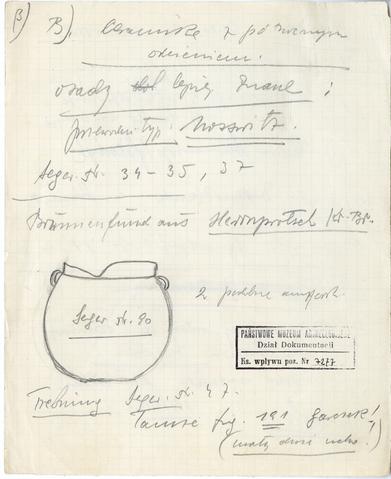 B) B), Ceramika z późnemym
odcieniem.
osady lepiej znane :
przewodni typ. Nosswitz.
Seger. str. 34-35, 37
Brunnenfund aus Herrnprotsch Kr. Br.
Seger str. 90
2 podobne
PAŃSTWOWE MUZEUM ARCHEOLOGICZNE
Dział Dokumentacji
Ks. wpływu poz. Nr 7277
Trebnig Seger. str. 47.
Tamże fig. 191 garnek!
(małe dwa ucha.?)